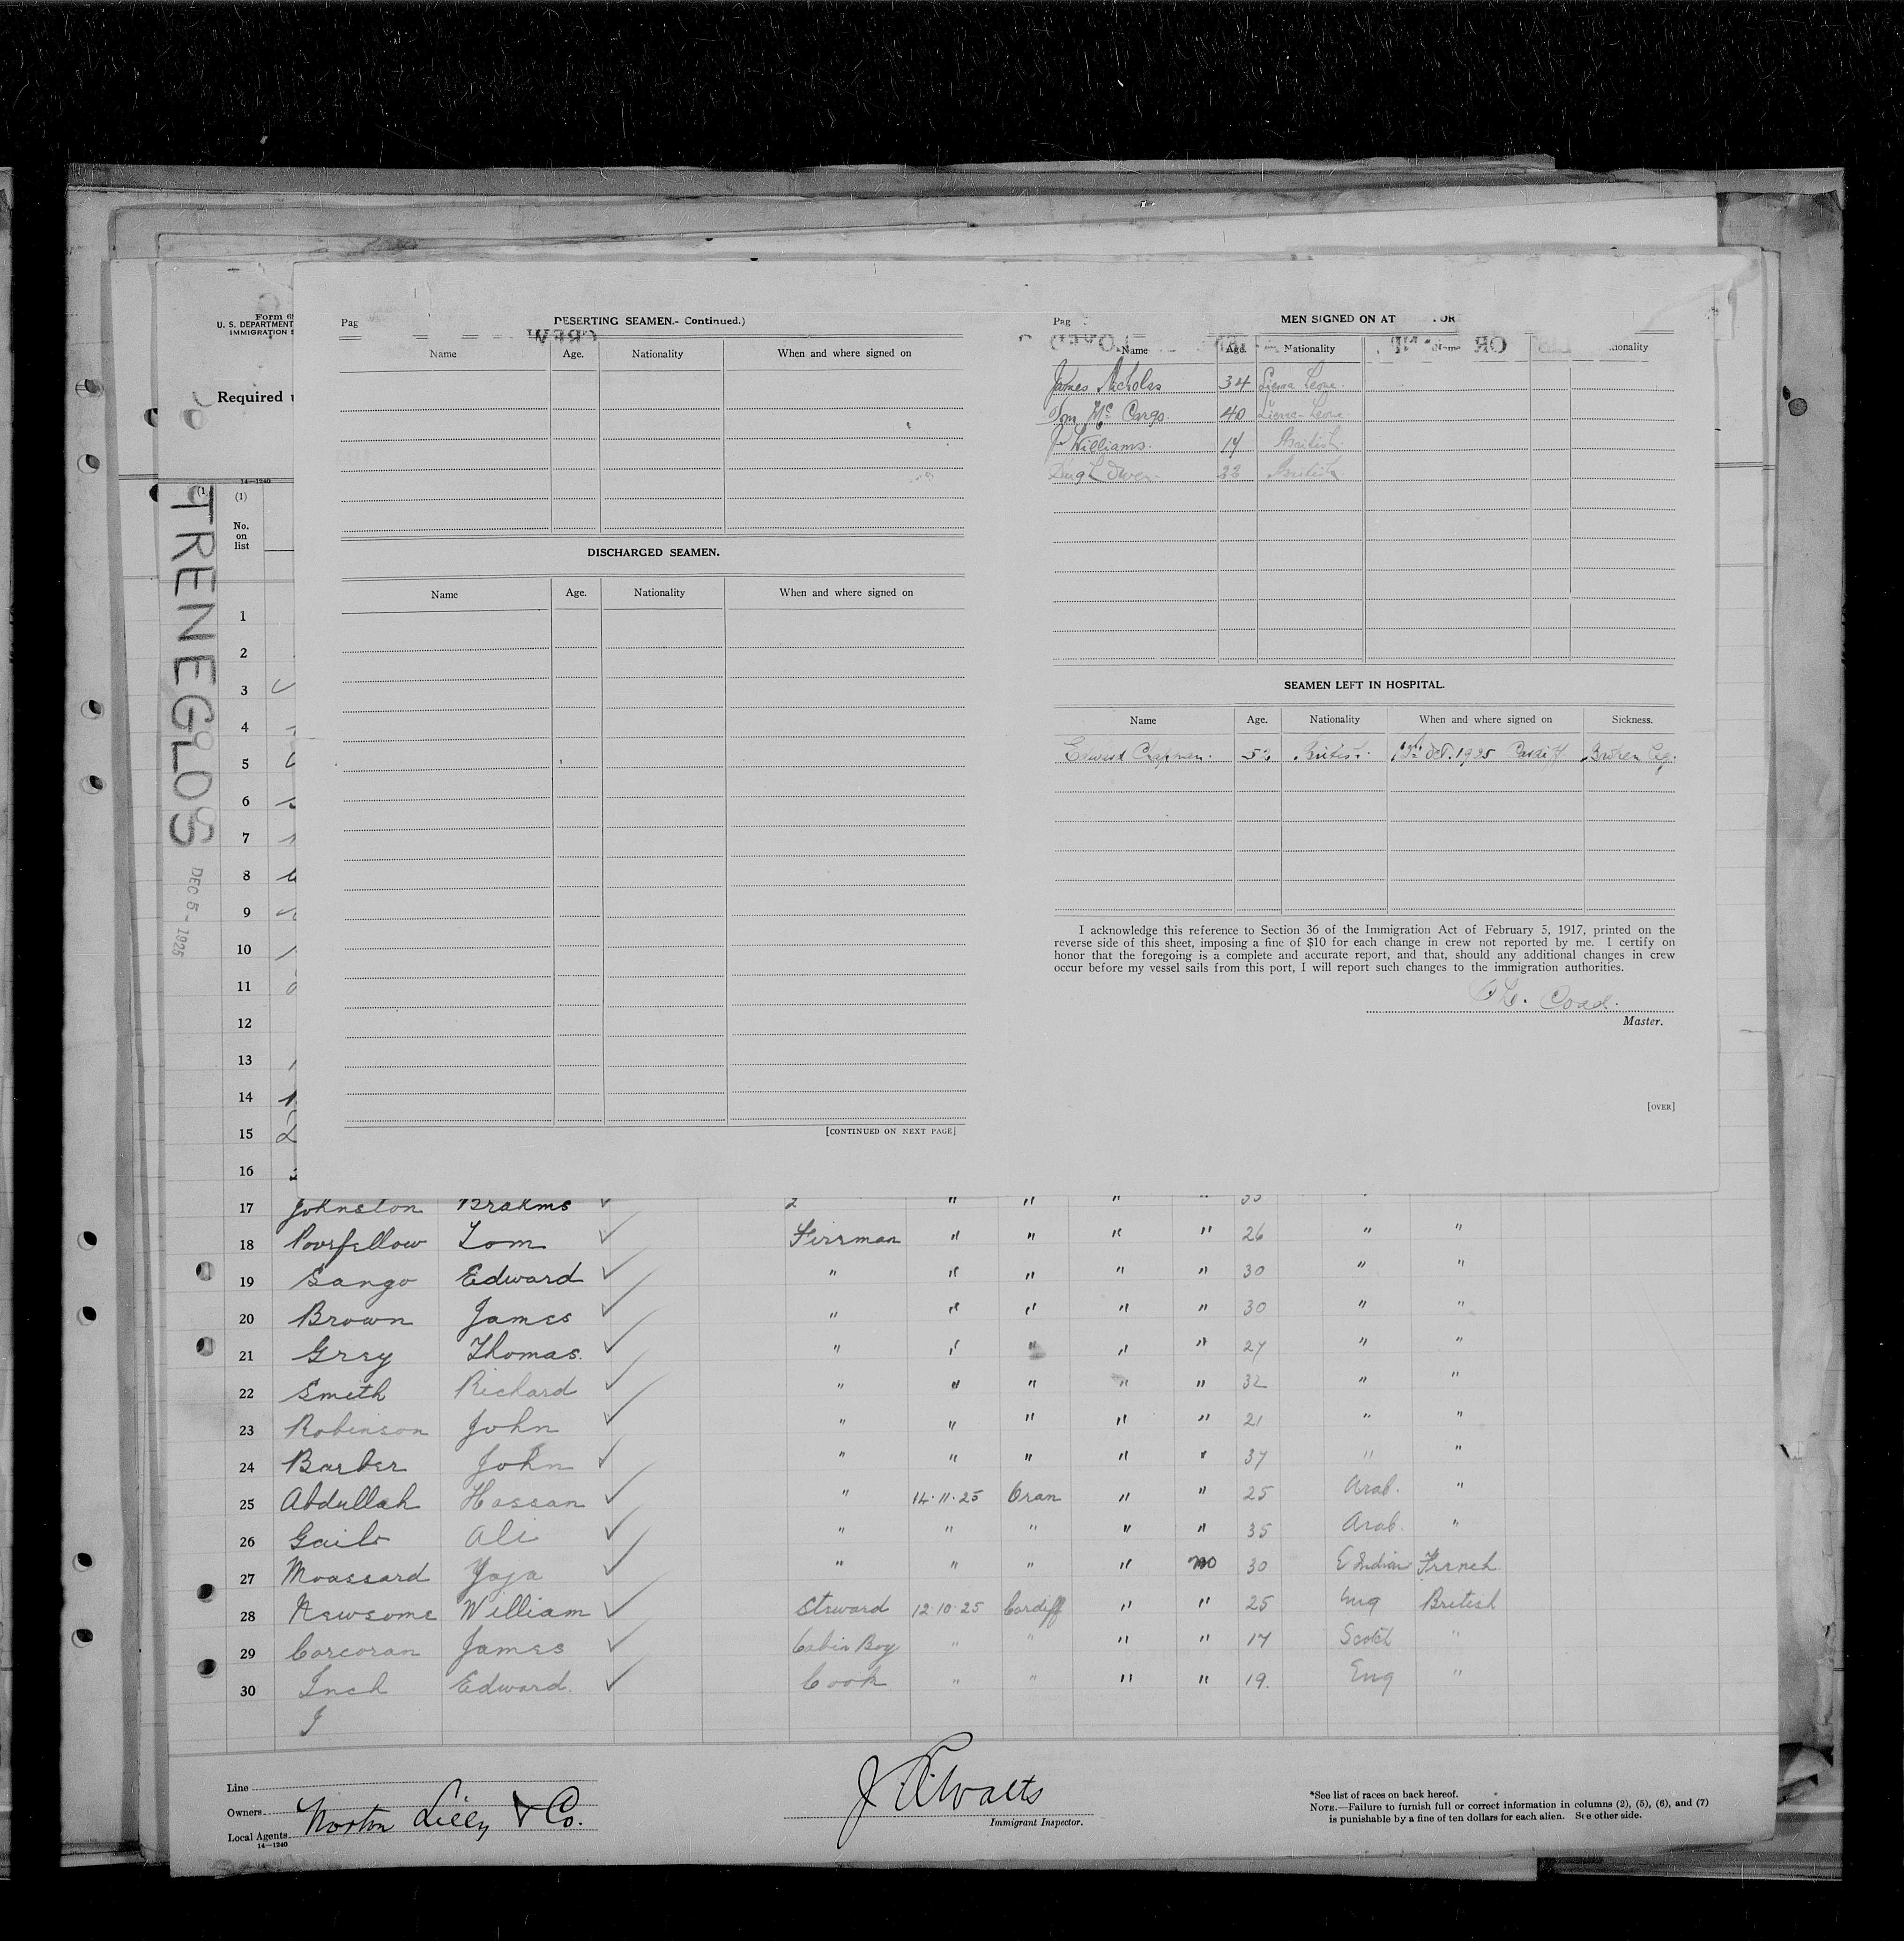 Form 68
U. S. DEPARTMENT
IMMIGRATION S
Required u
14—1240
(1)
No.
on
list
TRENEGLOS
DEC 5 - 1925
1
2
3
4
5
6
7
8
9
10
11
12
13
14
15
16
Pag
DESERTING SEAMEN.- Continued.)
Name Age. Nationality When and where signed on
DISCHARGED SEAMEN.
Name Age. Nationality When and where signed on
[CONTINUED ON NEXT PAGE]
Pag
MEN SIGNED ON AT OR
Name Age. Nationality Name ionality
James Nicholas 34 Sierra Leone.
Tom Mc Cargo. 40 Sierra-Leone.
J. Williams. 17 British.
Hugh Owen. British
SEAMEN LEFT IN HOSPITAL.
Name Age. Nationality When and where signed on Sickness.
Edward Chapman. 52 British. Oct. 1925 Cardiff Broken Leg.
I acknowledge this reference to Section 36 of the Immigration Act of February 5, 1917, printed on the
reverse side of this sheet, imposing a fine of $10 for each change in crew not reported by me. I certify on
honor that the foregoing is a complete and accurate report, and that, should any additional changes in crew
occur before my vessel sails from this port, I will report such changes to the immigration authorities.
Coad.
Master.
[OVER]
17 Johnston Brahms ✓ 2 " " " " 35
18 Poorfellow Tom ✓ Firrman " " " " 26 " "
19 Sango Edward ✓ " " " " " 30 " "
20 Brown James ✓ " " " " " 30 " "
21 Grey Thomas. ✓ " " " " " 27 " "
22 Smith Richard ✓ " " " " " 32 " "
23 Robinson John ✓ " " " " " 21 " "
24 Barber John ✓ " " " " " 37 " "
25 Abdullah Hassan ✓ " 14·11·25 Oran " " 25 Arab. "
26 Gaib Ali ✓ " " " " " 35 Arab. "
27 Moassard Yaja ✓ " " " " no 30 E Indian French
28 Newsome William ✓ Steward 12·10·25 Cardiff " " 25 Eng British
29 Corcoran James ✓ Cabin Boy " " " " 17 Scotch "
30 Inch Edward. ✓ Cook " " " " 19. Eng "
Line
Owners
Local Agents
Norton Lilly & Co.
14—1240
Immigrant Inspector.
*See list of races on back hereof.
NOTE.—Failure to furnish full or correct information in columns (2), (5), (6), and (7)
is punishable by a fine of ten dollars for each alien. See other side.